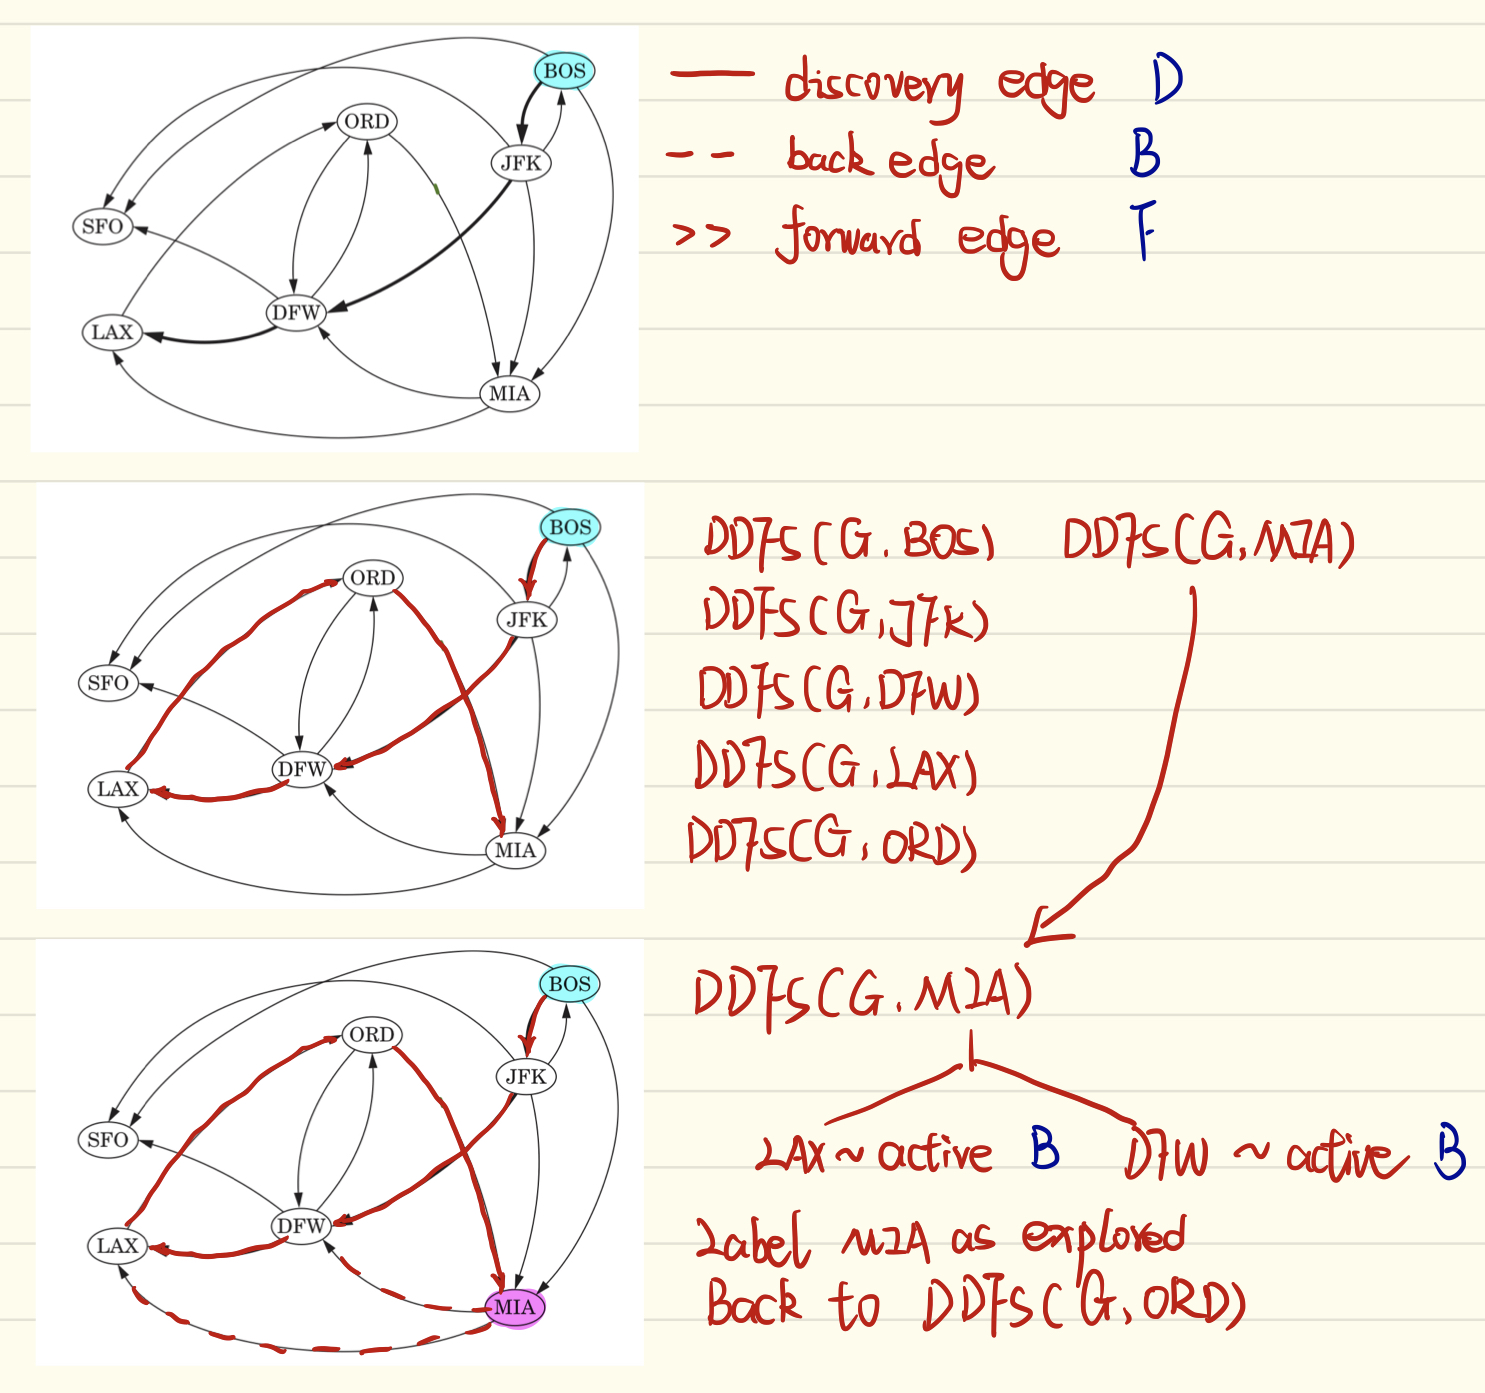 BOS
ORD
JFK
SFO
DFW
LAX
MIA
discovery edge D
-- back edge B
>> forward edge F
BOS
ORD
JFK
SFO
DFW
LAX
MIA
DDFS(G, BOS) DDFS(G, MIA)
DDFS(G, JFK)
DDFS(G, DFW)
DDFS(G, LAX)
DDFS(G, ORD)
BOS
ORD
JFK
SFO
DFW
LAX
MIA
DDFS(G, MIA)
LAX ~ active B DFW ~ active B
Label MIA as explored
Back to DDFS(G, ORD)